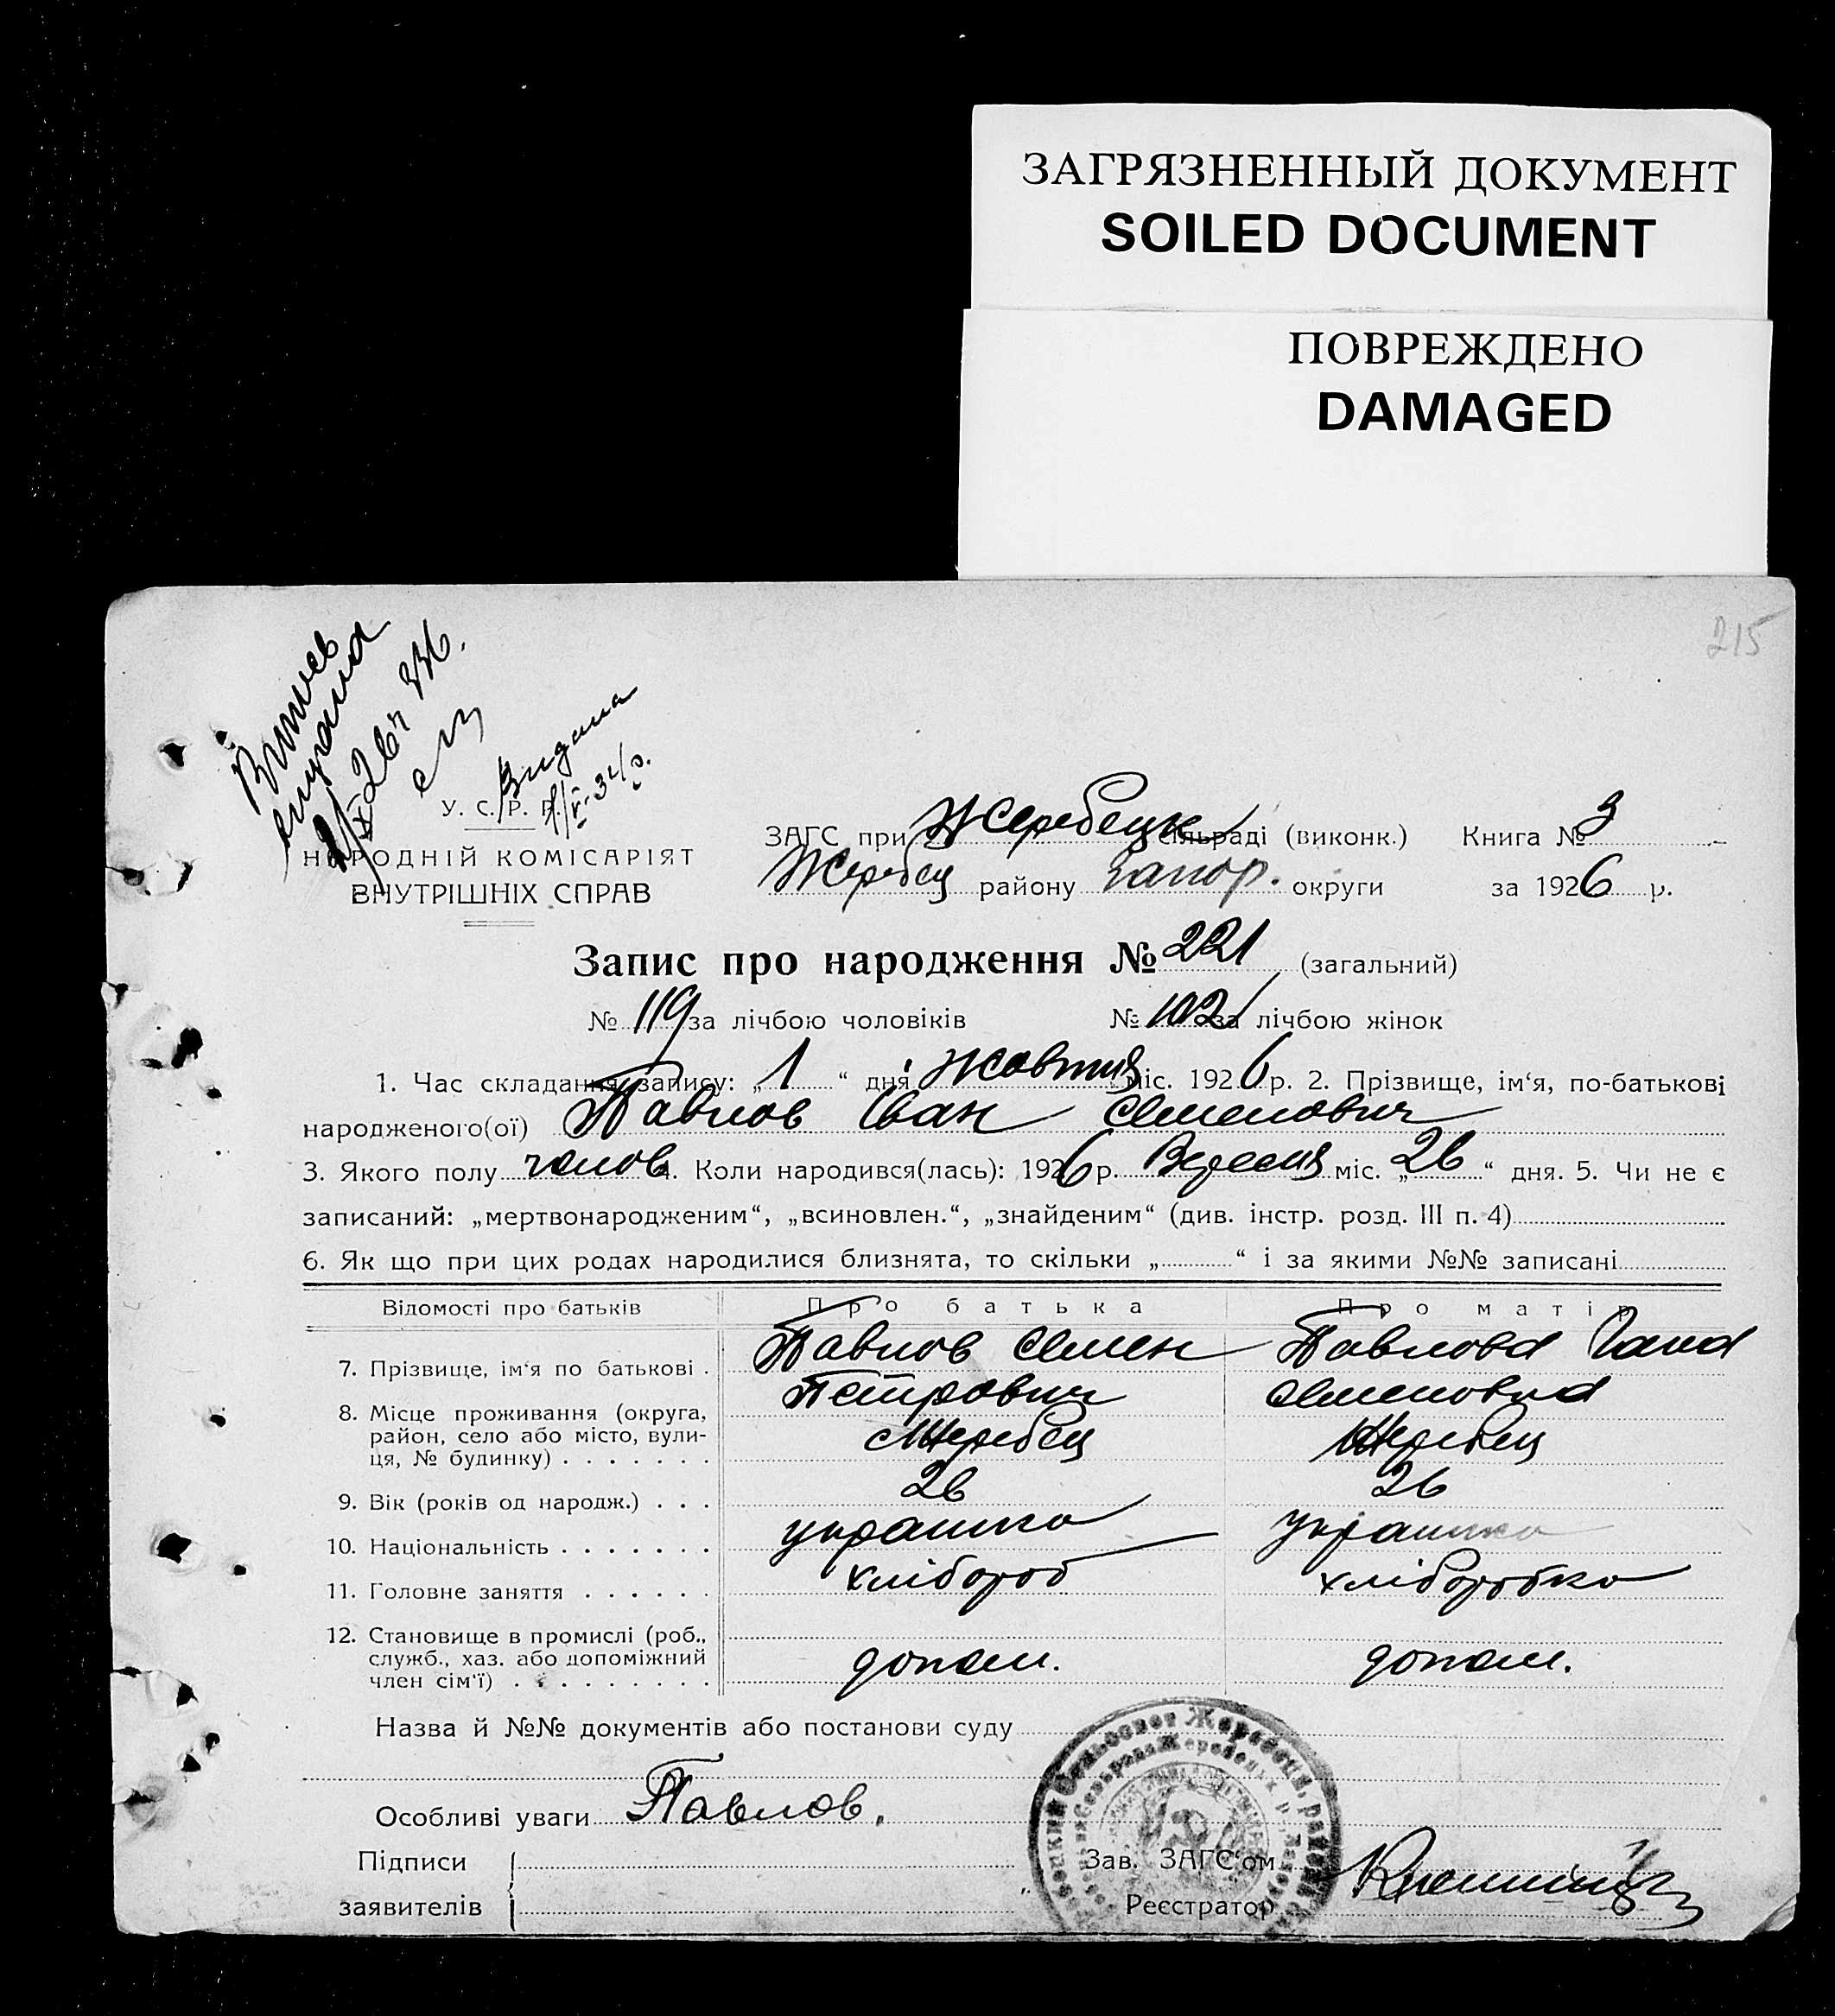 ЗАГРЯЗНЕННЫЙ ДОКУМЕНТ
SOILED DOCUMENT
ПОВРЕЖДЕНО
DAMAGED
215
Видана
У. С. Р. Р.
НАРОДНІЙ КОМІСАРІЯТ
ВНУТРІШНІХ СПРАВ
ЗАГС при Жеребецк сільраді (виконк.) Книга № 3
Жеребец району Запор. округи за 1926 р.
Запис про народження № 221 (загальний)
№ 119 за лічбою чоловіків № 102 за лічбою жінок
1. Час складання запису: „ 1 “ дня Жовтня міс. 1926 р. 2. Прізвище, ім‘я, по-батькові
народженого(ої) Павлов Іван Семенович
3. Якого полу чолов. 4. Коли народився(лась): 1926 р. Вересня міс. „ 26 “ дня. 5. Чи не є
записаний: „мертвонародженим“, „всиновлен.“, „знайденим“ (див. інстр. розд. III п. 4)
6. Як що при цих родах народилися близнята, то скільки „ “ і за якими №№ записані
Відомості про батьків Про батька Про матір
7. Прізвище, ім‘я по батькові . Павлов Семен Петрович Павлова Ганна Семеновна
8. Місце проживання (округа, район, село або місто, вулиця, № будинку) . . . . . . . Жеребец Жеребец
9. Вік (років од народж.) . . . 26 26
10. Національність . . . . . . . українка українка
11. Головне заняття . . . . . . хлібороб хліборобка
12. Становище в промислі (роб., служб., хаз. або допоміжний член сім‘ї) . . . . . . . . . допом. допом.
Назва й №№ документів або постанови суду
Особливі уваги Павлов.
Підписи
заявителів
Зав. ЗАГС‘ом
Реєстратор